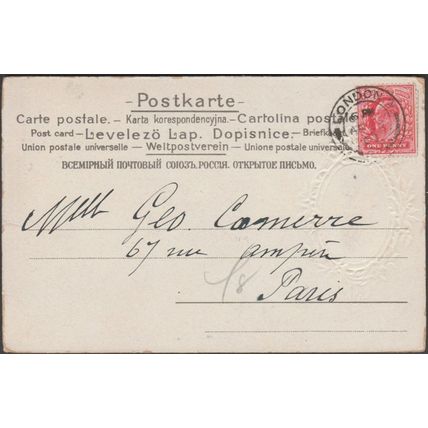 Postkarte
Carte postale. – Karta korespondencyjna. – Cartolina postale
Post card – Levelező Lap. Dopisnice. – Briefkaart
Union postale universelle – Weltpostverein – Unione postale universale
ВСЕМІРНЫЙ ПОЧТОВЫЙ СОЮЗЪ. РОССІЯ. ОТКРЫТОЕ ПИСЬМО.
LONDON
ONE PENNY
Mell Geo. Camerre
67 rue Ampère
Paris